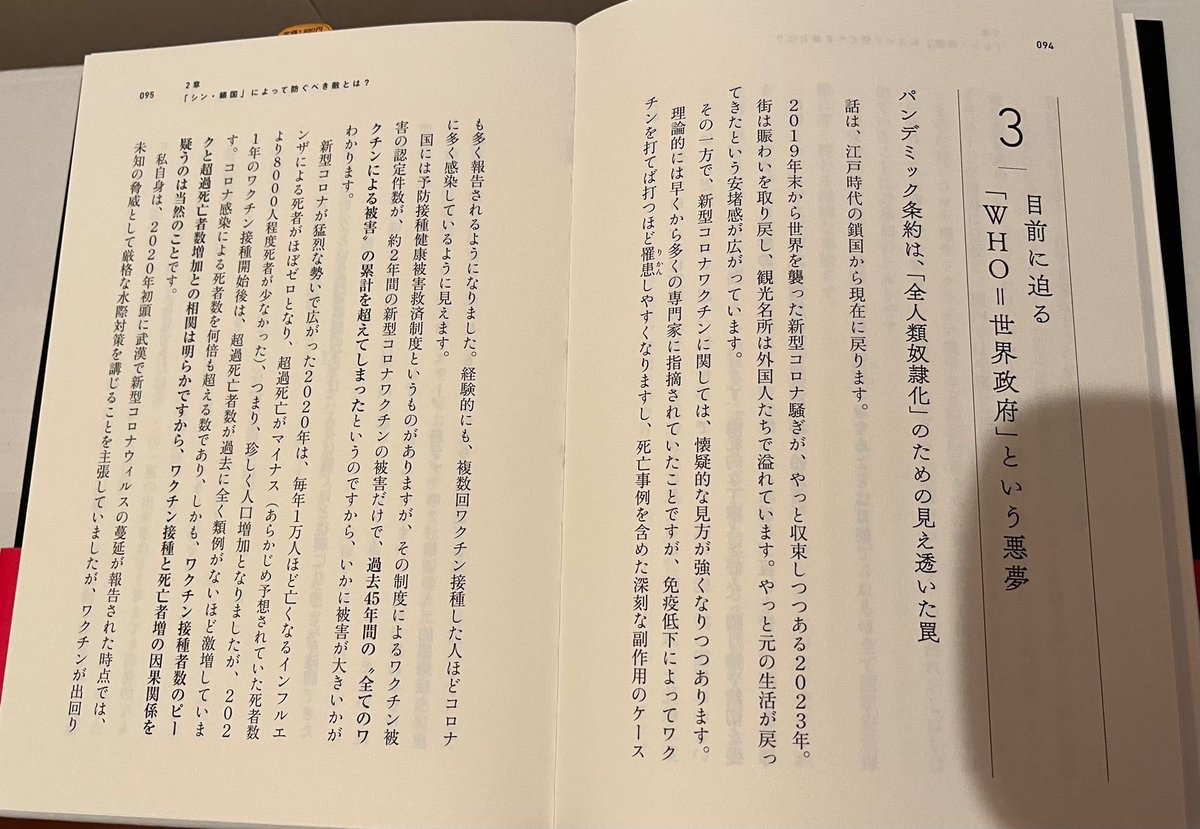 094
3 目前に迫る
「WHO=世界政府」という悪夢
パンデミック条約は、「全人類奴隷化」のための見え透いた罠
話は、江戸時代の鎖国から現在に戻ります。
2019年末から世界を襲った新型コロナ騒ぎが、やっと収束しつつある2023年。
街は賑わいを取り戻し、観光名所は外国人たちで溢れています。やっと元の生活が戻っ
てきたという安堵感が広がっています。
その一方で、新型コロナワクチンに関しては、懐疑的な見方が強くなりつつあります。
理論的には早くから多くの専門家に指摘されていたことですが、免疫低下によってワク
チンを打てば打つほど罹患しやすくなりますし、死亡事例を含めた深刻な副作用のケース
りかん
095
2章
「シン・鎖国」によって防ぐべき敵とは？
も多く報告されるようになりました。経験的にも、複数回ワクチン接種した人ほどコロナ
に多く感染しているように見えます。
国には予防接種健康被害救済制度というものがありますが、その制度によるワクチン被
害の認定件数が、約2年間の新型コロナワクチンの被害だけで、過去45年間の〝全てのワ
クチンによる被害〟の累計を超えてしまったというのですから、いかに被害が大きいかが
わかります。
新型コロナが猛烈な勢いで広がった2020年は、毎年1万人ほど亡くなるインフルエ
ンザによる死者がほぼゼロとなり、超過死亡がマイナス（あらかじめ予想されていた死者数
より8000人程度死者が少なかった）、つまり、珍しく人口増加となりましたが、202
1年のワクチン接種開始後は、超過死亡者数が過去に全く類例がないほど激増していま
す。コロナ感染による死者数を何倍も超える数であり、しかも、ワクチン接種者数のピー
クと超過死亡者数増加との相関は明らかですから、ワクチン接種と死亡者増の因果関係を
疑うのは当然のことです。
私自身は、2020年初頭に武漢で新型コロナウィルスの蔓延が報告された時点では、
未知の脅威として厳格な水際対策を講じることを主張していましたが、ワクチンが出回り